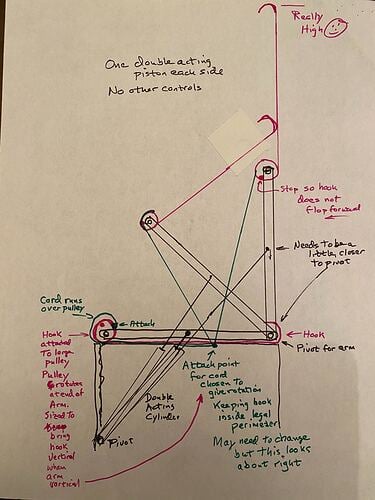 Really
High
One double acting
piston each side
No other controls
Stop so hook
does not
flop forward
Needs to be a
little closer
to pivot
Cord runs
over pulley
Attach
Hook
attached
To large
pulley
Pulley
rotates
at end of
Arm.
Sized To
bring
hook
Vertical
when
arm
vertical
Hook
Pivot for arm
Attach point
for cord
chosen To
give rotation
Keeping hook
inside legal
perimeter
May need to change
but this looks
about right
Double
Acting
Cylinder
Pivot